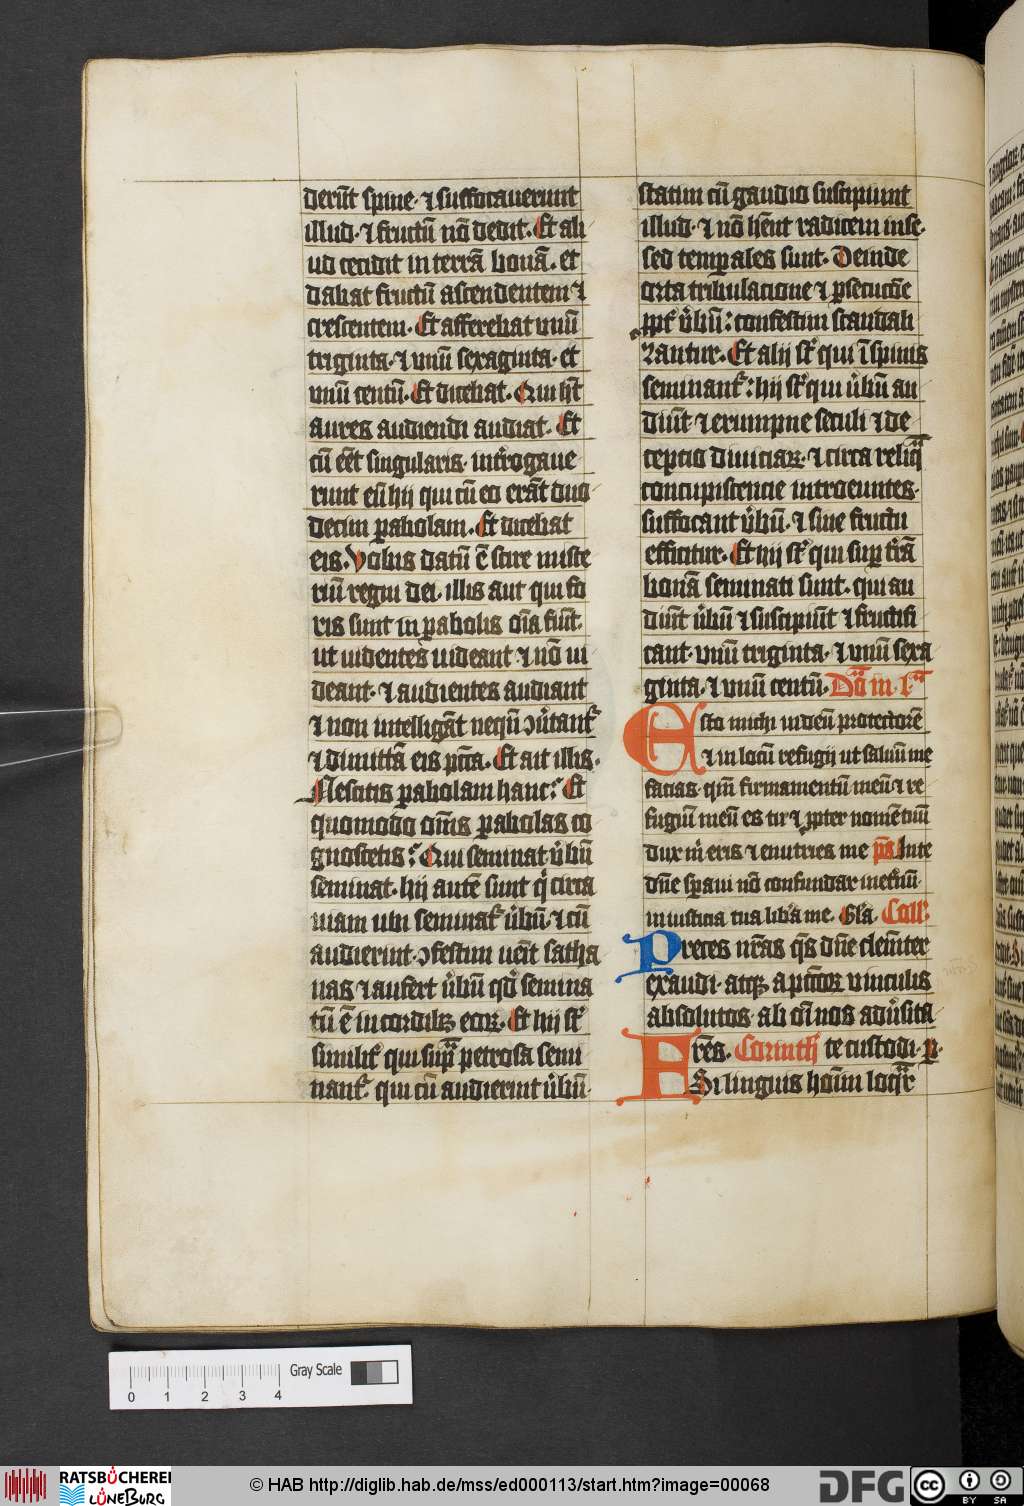 derūt spine · ⁊ suffocauerunt
illud · ⁊ fructū nō dedit · Et ali
ud cecidit in terrā bonā · et
dabat fructū ascendentem ⁊
crescentem · Et afferebat vnū
triginta · ⁊ vnū sexaginta · et
vnū centū · Et dicebat · Qui hꝫt
aures audiendi audiat · Et
cū eēt singularis · intʳogaue
runt eū hij qui cū eo erāt duo
decim ꝑabolam · Et dicebat
eis · Vobis datū ē scire miste
riū regni dei · illis aut qui fo
ris sunt in ꝑabolis oīa fiūt ·
ut uidentes uideant ⁊ nō ui
deant · ⁊ audientes audiant
⁊ non intelligāt nequn̄ ↄu̇tantʳ
⁊ dimittā eis pctā · Et ait illis ·
Nescitis ꝑabolam hanc? Et
quomodo om̄s ꝑabolas co
gnoscetis? Qui seminat u̇bū
seminat · hij autē sunt q̇ circa
uiam ubi seminatʳ u̇bū · ⁊ cū
audierint · ↄfestim ueīt satha
nas ⁊ aufert u̇bū qd̓ semina
tū ē in cordibꝫ eoꝝ · Et hij sʳt
similitʳ qui supᵃ petrosa semi
nantʳ qui cū audierint u̇bū ·
statim cū gaudio suscipiunt
illud · ⁊ nō hēnt radicem in se ·
sed temꝑales sunt · Deinde
orta tribulacione ⁊ ꝑsecucōe
ꝓptʳ u̇bū : confestim scandali
zantur · Et alij sʳt qui ī spinis
seminantʳ : hij sʳt qui u̇bū au
diūt ⁊ erumpne seculi ⁊ de
ceptio diuiciaꝝ · ⁊ circa reliqᵃ
concupiscencie introeuntes ·
suffocant u̇bū · ⁊ sine fructu
efficitur · Et hij sʳt qui suꝑ tʳrā
bonā seminati sunt · qui au
diūt u̇bū ⁊ suscipiūt ⁊ fructifi
cant · vnū triginta · ⁊ vnū sexa
ginta · ⁊ vnū centū · Dn̄ᵃ in · lᵃ
Esto michi in deū protectorē
⁊ in locū refugij ut saluū me
facias · qm̄ firmamentū meū ⁊ re
fugiū meū es tu ⁊ ꝓpter nomē tuū
dux m̓ eris ⁊ enutries me p̄s In te
dn̄e spaui nō confundar in etʳnū ·
in iusticia tua libʳa me · Gʳlᵃ · Coll :
Preces nr̄as qs̄ dn̄e clemʳter
exaudi · atqꝫ a pctōꝝ vinculis
absolutos · ab oī nos adu̇sita
te custodi · ꝑ ·
Fr̄es · Corinth
Si linguis hoīm loqʳr
Gray Scale
0 1 2 3 4
RATSBÜCHEREI
LÜNEBURG
© HAB http://diglib.hab.de/mss/ed000113/start.htm?image=00068
DFG
cc
BY SA